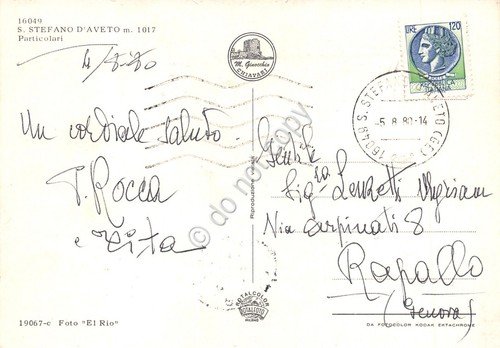 16049
S. STEFANO D'AVETO m. 1017
Particolari
4/8/80
Un cordiale saluto
T. Rocca
e Zita
M. Giacchio
CHIAVARI
LIRE 120
16049 S. STEFANO D'AVETO (GE)
5.8.80-14
Gent.le
Sig.ra Lenzetti Myriam
Via Carpinati 8
Rapallo
(Genova)
TOTALCOLOR
MILANO
19067-c Foto "El Rio"
DA FOTOCOLOR KODAK EKTACHROME
do not copy